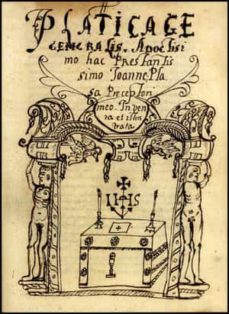 PLATICA GE
GENERALIS. A Doctisi
mo hac Prestantis
simo Ioanne Pla
sa Preceptori
meo. In
ra et illus
trata
IHS